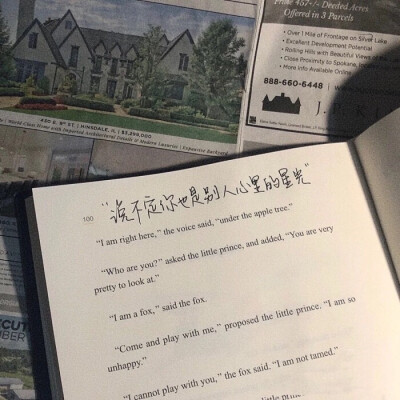 Price: 457+/- Deeded Acres
Offered in 3 Parcels
• Over 1 Mile of Frontage on Silver Lake
• Excellent Development Potential
• Rolling Hills with Beautiful Views of
• Close Proximity to Spokane,
• More Info Available Online
888-660-6448
430 E. 8th ST. | HINSDALE, IL | $3,899,000
"说不定你也是别人心里的星光"
100
"I am right here," the voice said, "under the apple tree."
"Who are you?" asked the little prince, and added, "You are very
pretty to look at."
"I am a fox," said the fox.
"Come and play with me," proposed the little prince. "I am so
unhappy."
"I cannot play with you," the fox said. "I am not tamed."